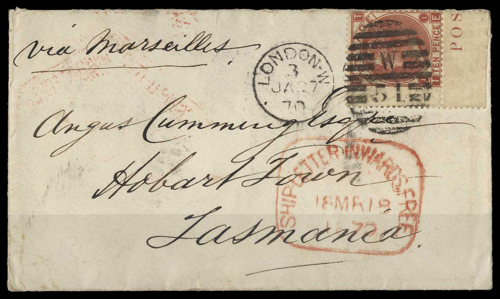 via Marseilles.
LONDON·W
3
JA 27
70
W
TEN PENCE
POS
Angus Cumming Esqre
Hobart Town
Tasmania.
SHIP LETTER INWARDS FREE
18 MR 18